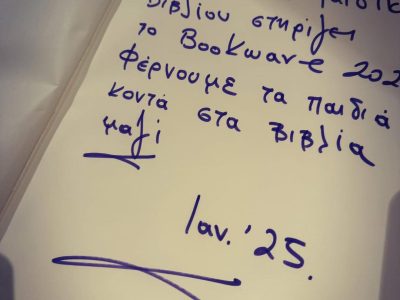 βιβλίου στηρίζει
το Bookwave 202
Φέρνουμε τα παιδιά
κοντά στα βιβλία
μαζί
Ιαν. '25.